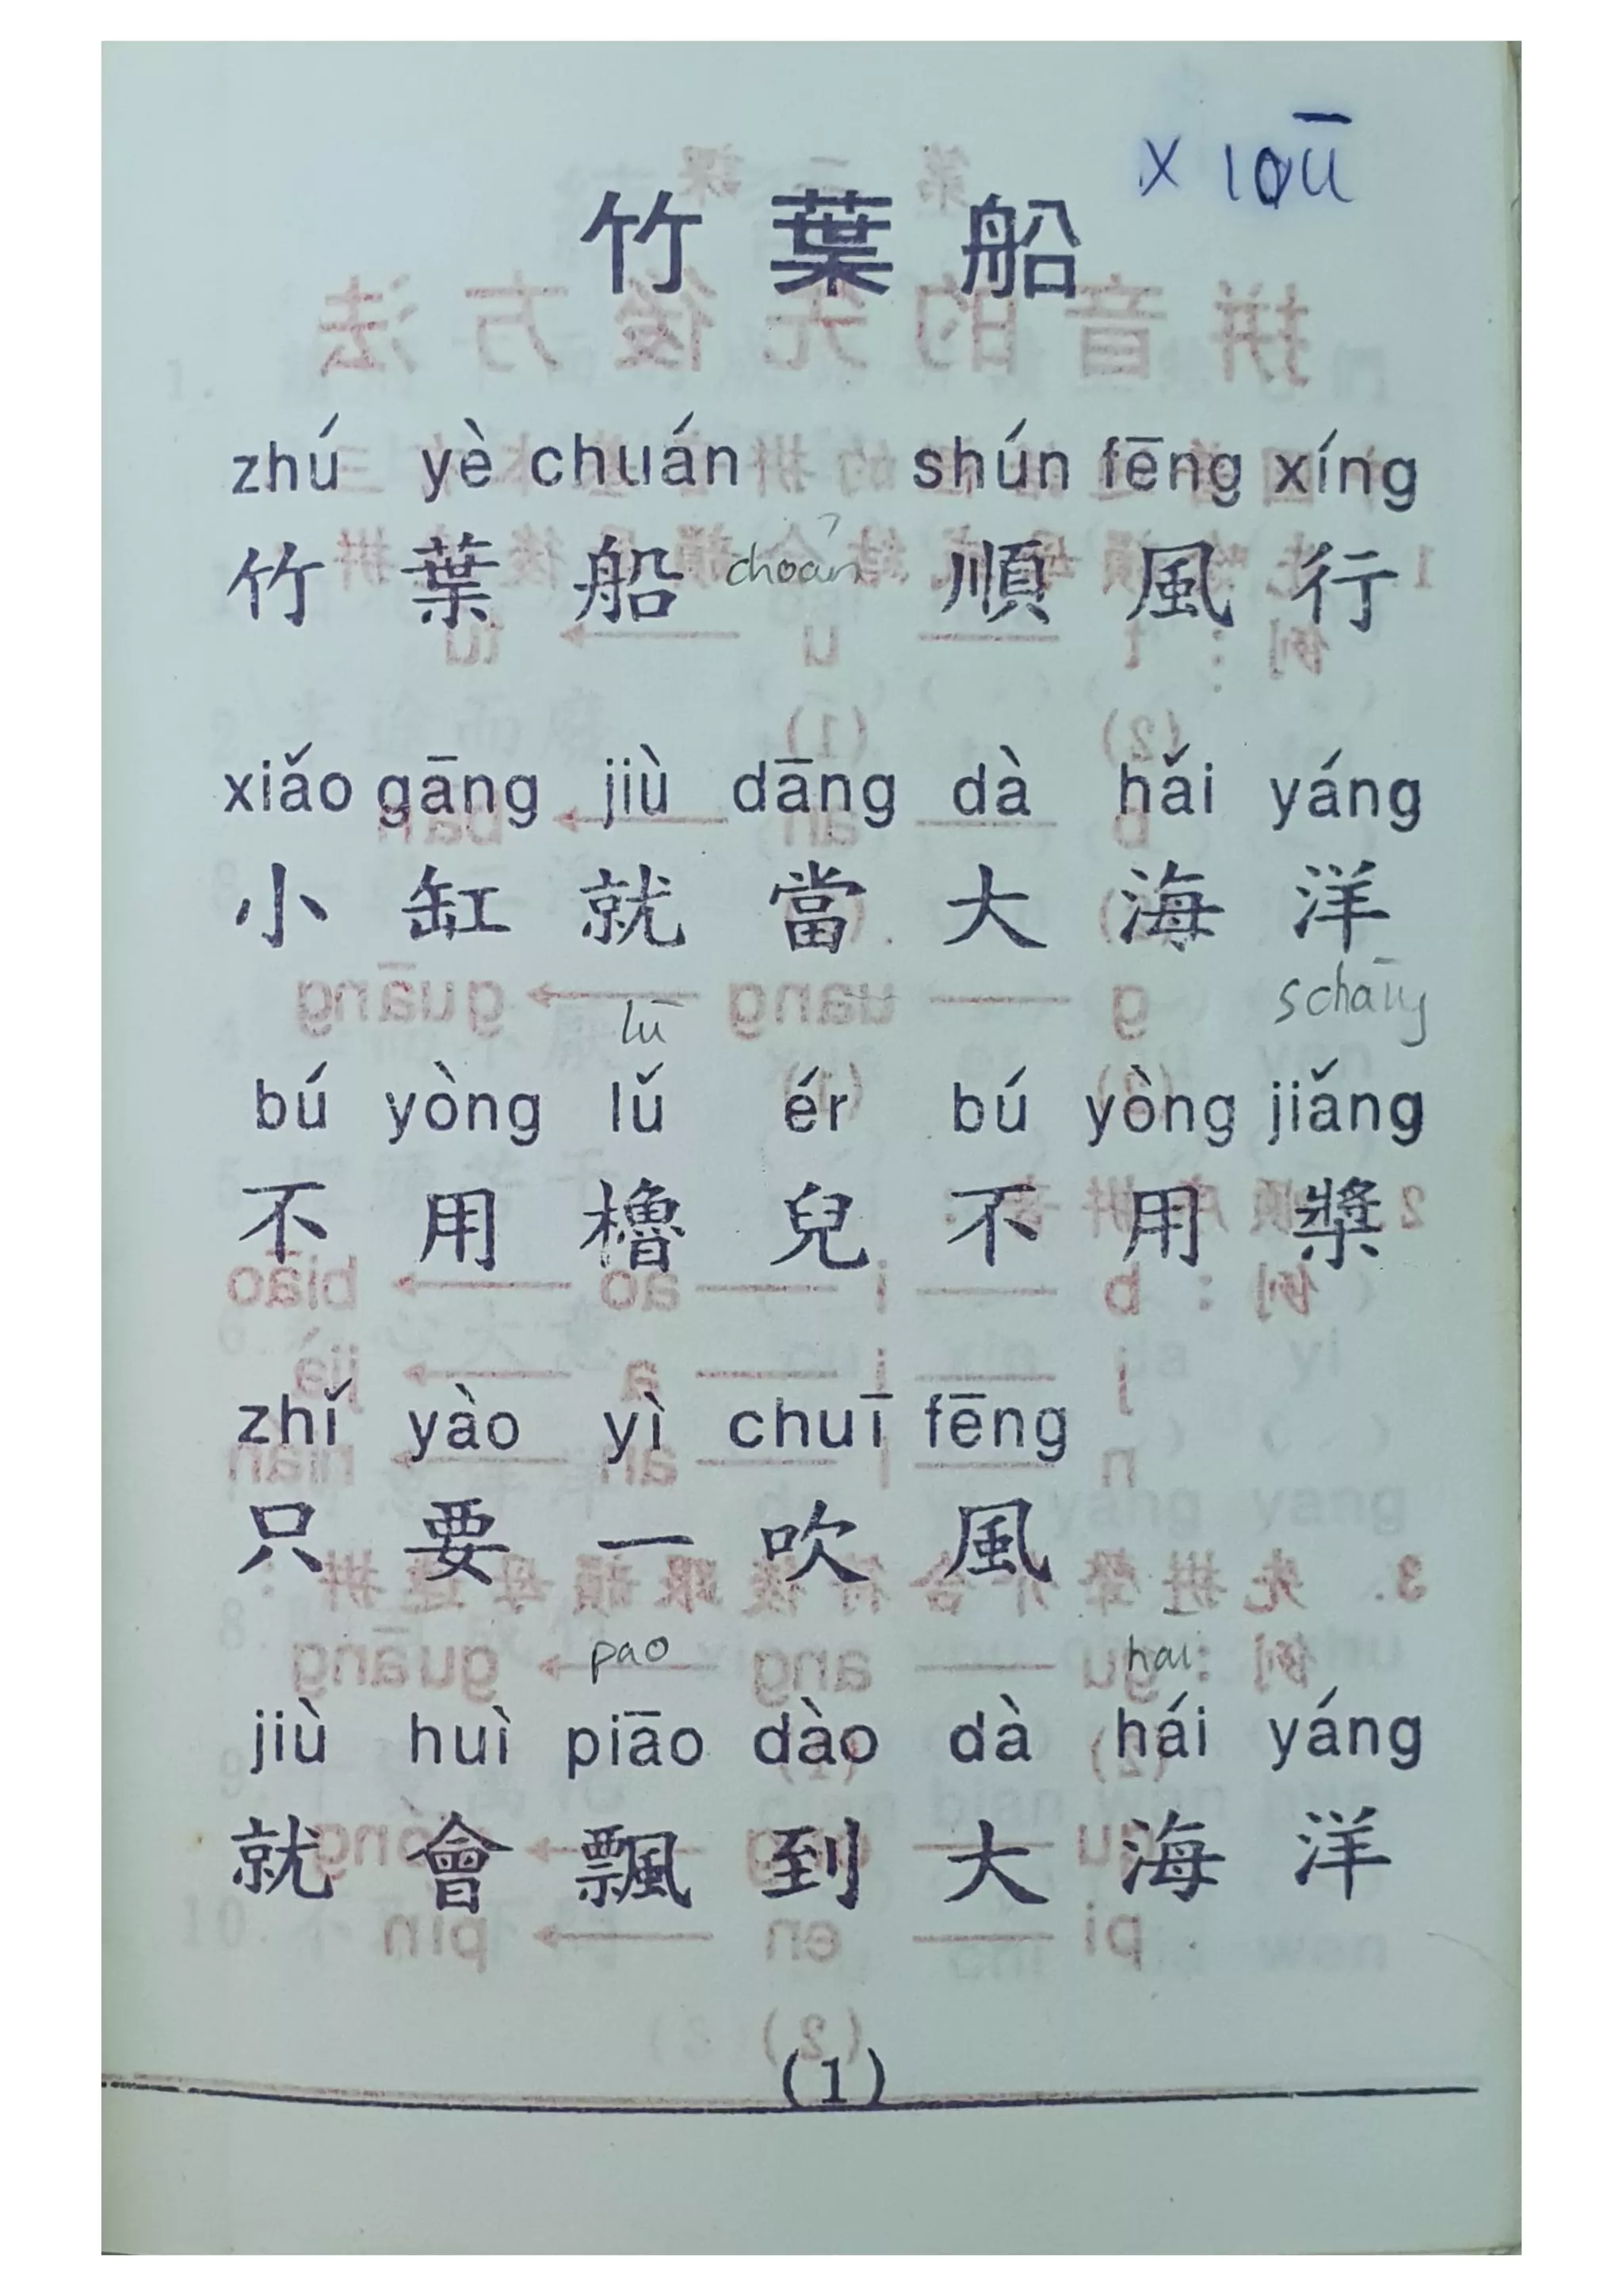 x ioū
竹葉船
zhú yè chuán shún fēng xíng
竹葉船 choán 順風行
xiǎo gāng jiù dāng dà hǎi yáng
小缸就當大海洋
lū schāng
bú yòng lǔ ér bú yòng jiǎng
不用櫓兒不用槳
zhǐ yào yì chuī fēng
只要一吹風
pao hai
jiù huì piāo dào dà hái yáng
就會飄到大海洋
(1)